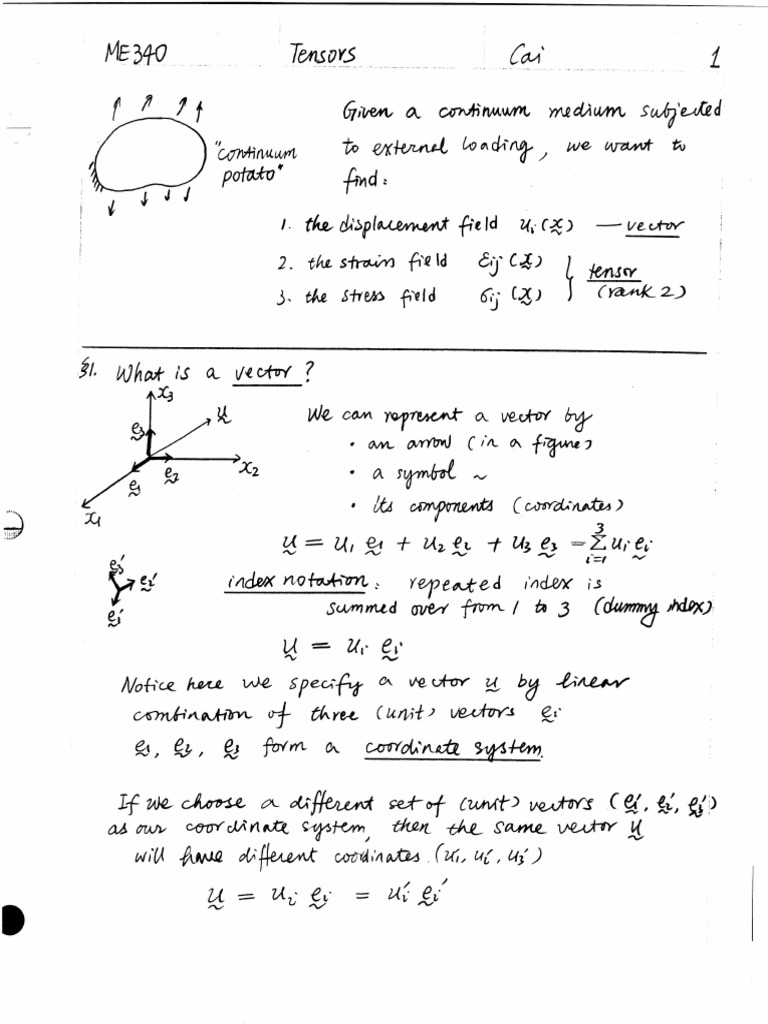 ME340 Tensors Cai 1
"continuum
potato"
Given a continuum medium subjected
to external loading, we want to
find:
1. the displacement field ṵᵢ(x̰) — vector
2. the strain field εᵢⱼ(x̰)
3. the stress field σᵢⱼ(x̰)
} tensor
(rank 2)
§1. What is a vector?
x₃
ṵ
ḛ₃
ḛ₂
x₂
ḛ₁
x₁
We can represent a vector by
• an arrow (in a figure)
• a symbol ~
• its components (coordinates)
ṵ = u₁ ḛ₁ + u₂ ḛ₂ + u₃ ḛ₃ = Σ³ᵢ₌₁ uᵢ ḛᵢ
ḛ₃'
ḛ₂'
ḛ₁'
index notation: repeated index is
summed over from 1 to 3 (dummy index)
ṵ = uᵢ ḛᵢ
Notice here we specify a vector ṵ by linear
combination of three (unit) vectors ḛᵢ
ḛ₁, ḛ₂, ḛ₃ form a coordinate system.
If we choose a different set of (unit) vectors (ḛ₁', ḛ₂', ḛ₃')
as our coordinate system, then the same vector ṵ
will have different coodinates. (u₁', u₂', u₃')
ṵ = uᵢ ḛᵢ = uᵢ' ḛᵢ'